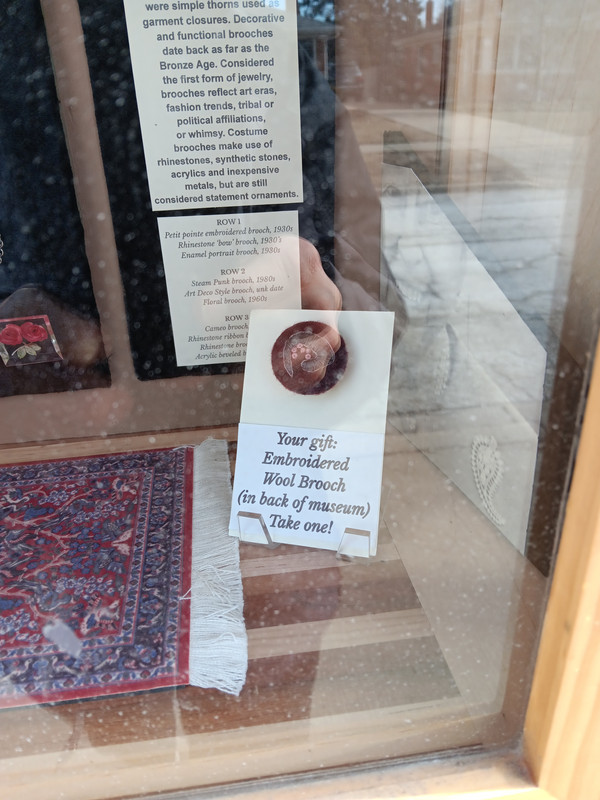 were simple thorns used as
garment closures. Decorative
and functional brooches
date back as far as the
Bronze Age. Considered
the first form of jewelry,
brooches reflect art eras,
fashion trends, tribal or
political affiliations,
or whimsy. Costume
brooches make use of
rhinestones, synthetic stones,
acrylics and inexpensive
metals, but are still
considered statement ornaments.
ROW 1
Petit pointe embroidered brooch, 1930s
Rhinestone 'bow' brooch, 1930's
Enamel portrait brooch, 1930s
ROW 2
Steam Punk brooch, 1980s
Art Deco Style brooch, unk date
Floral brooch, 1960s
ROW 3
Cameo brooch
Rhinestone ribbon
Rhinestone
Acrylic beveled
Your gift:
Embroidered
Wool Brooch
(in back of museum)
Take one!